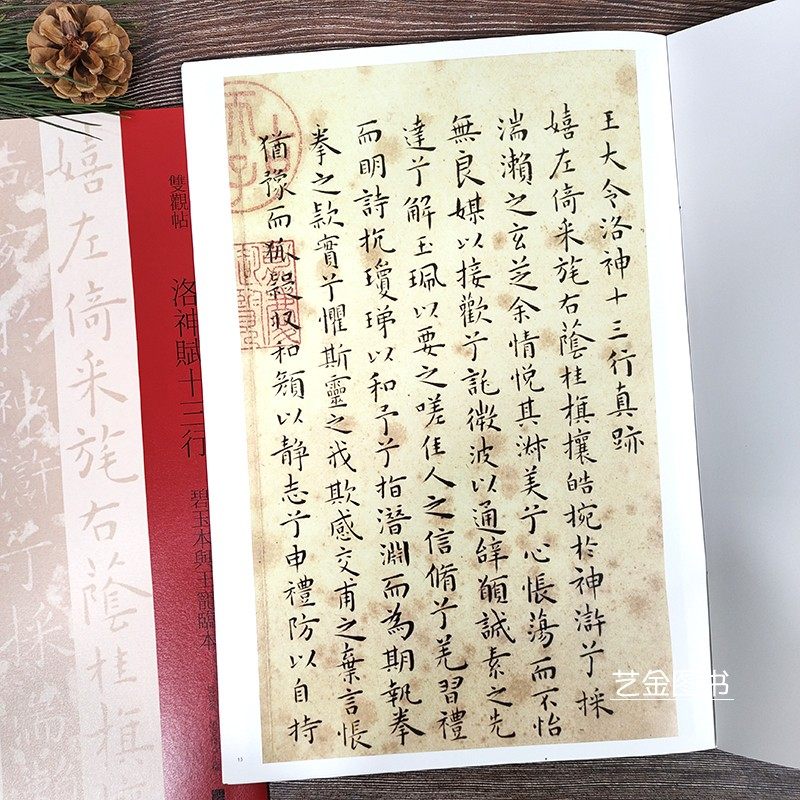 王大令洛神十三行真跡
嬉左倚采旄右蔭桂旗攘皓捥於神滸兮採
湍瀨之玄芝余情悅其淋美兮心悵蕩而不怡
無良媒以接歡兮託微波以通辝願誠素之先
達兮解玉珮以要之嗟佳人之信脩兮羌習禮
而明詩抗瓊珶以和予兮指潛淵而為期執拳
拳之款實兮懼斯靈之我欺感交甫之棄言悵
猶豫而狐疑収和顏以靜志兮申禮防以自持
雙觀帖
洛神賦十三行
碧玉本與王寵臨本
嬉左倚采旄右蔭桂旗
神滸兮採
艺金图书
15